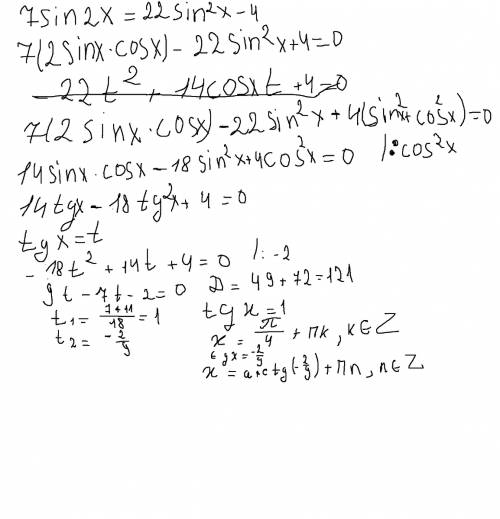 7sin2x = 22sin²x - 4
7(2sinx·cosx) - 22sin²x + 4 = 0
22t² + 14cosxt + 4 = 0
7(2sinx·cosx) - 22sin²x + 4(sin²x + cos²x) = 0
14sinx·cosx - 18sin²x + 4cos²x = 0 /:cos²x
14tgx - 18tg²x + 4 = 0
tgx = t
-18t² + 14t + 4 = 0 /:-2
9t - 7t - 2 = 0 D = 49 + 72 = 121
t₁ = (7+11)/18 = 1 tgx = 1
t₂ = -2/9 x = π/4 + πk, k∈Z
tgx = -2/9
x = arctg(-2/9) + πn, n∈Z